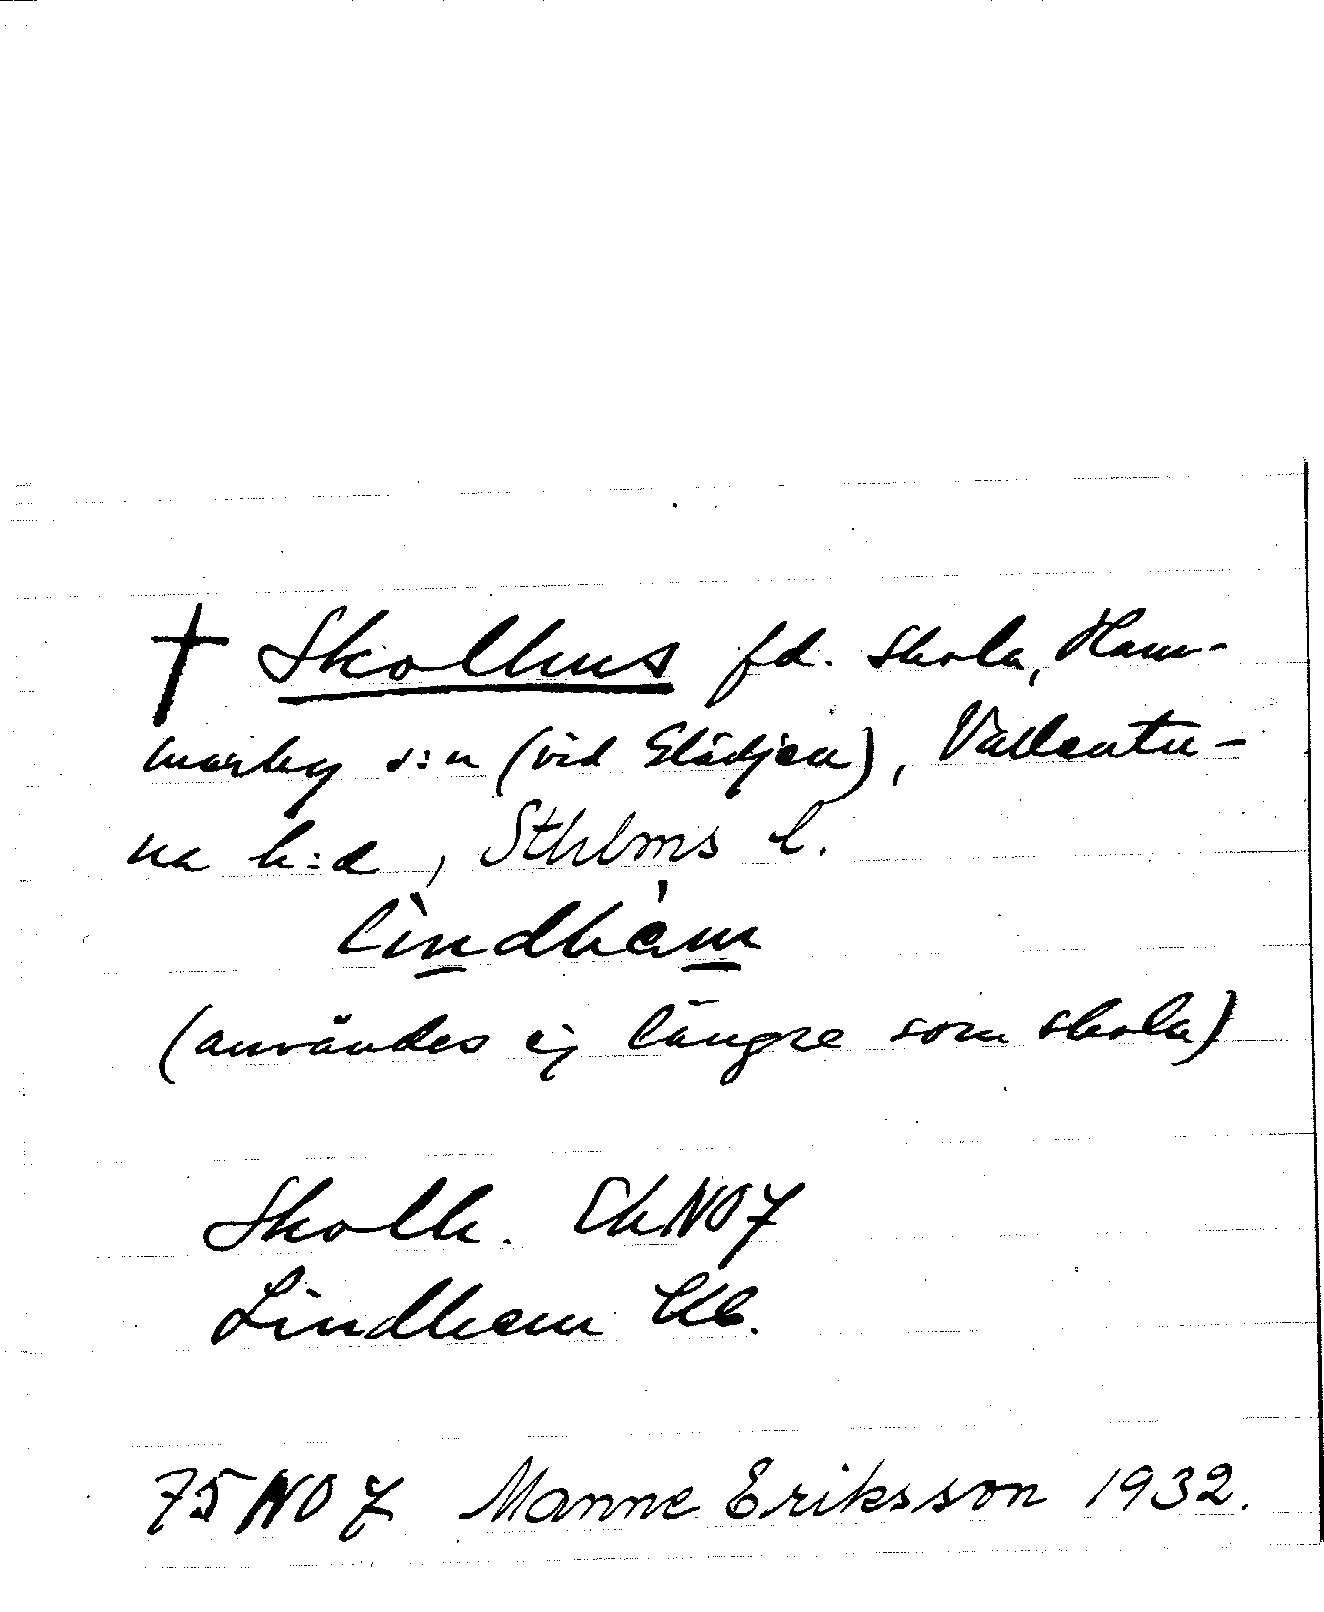 † Skolhus f.d. skola, Ham-
marby s:n (vid Glädjen), Vallentu-
na h:d, Sthlms l.
lìndhèm
(användes ej längre som skola)
Skolh. Ek NO 7
Lindhem Ub.
75 NO 7 Manne Eriksson 1932.